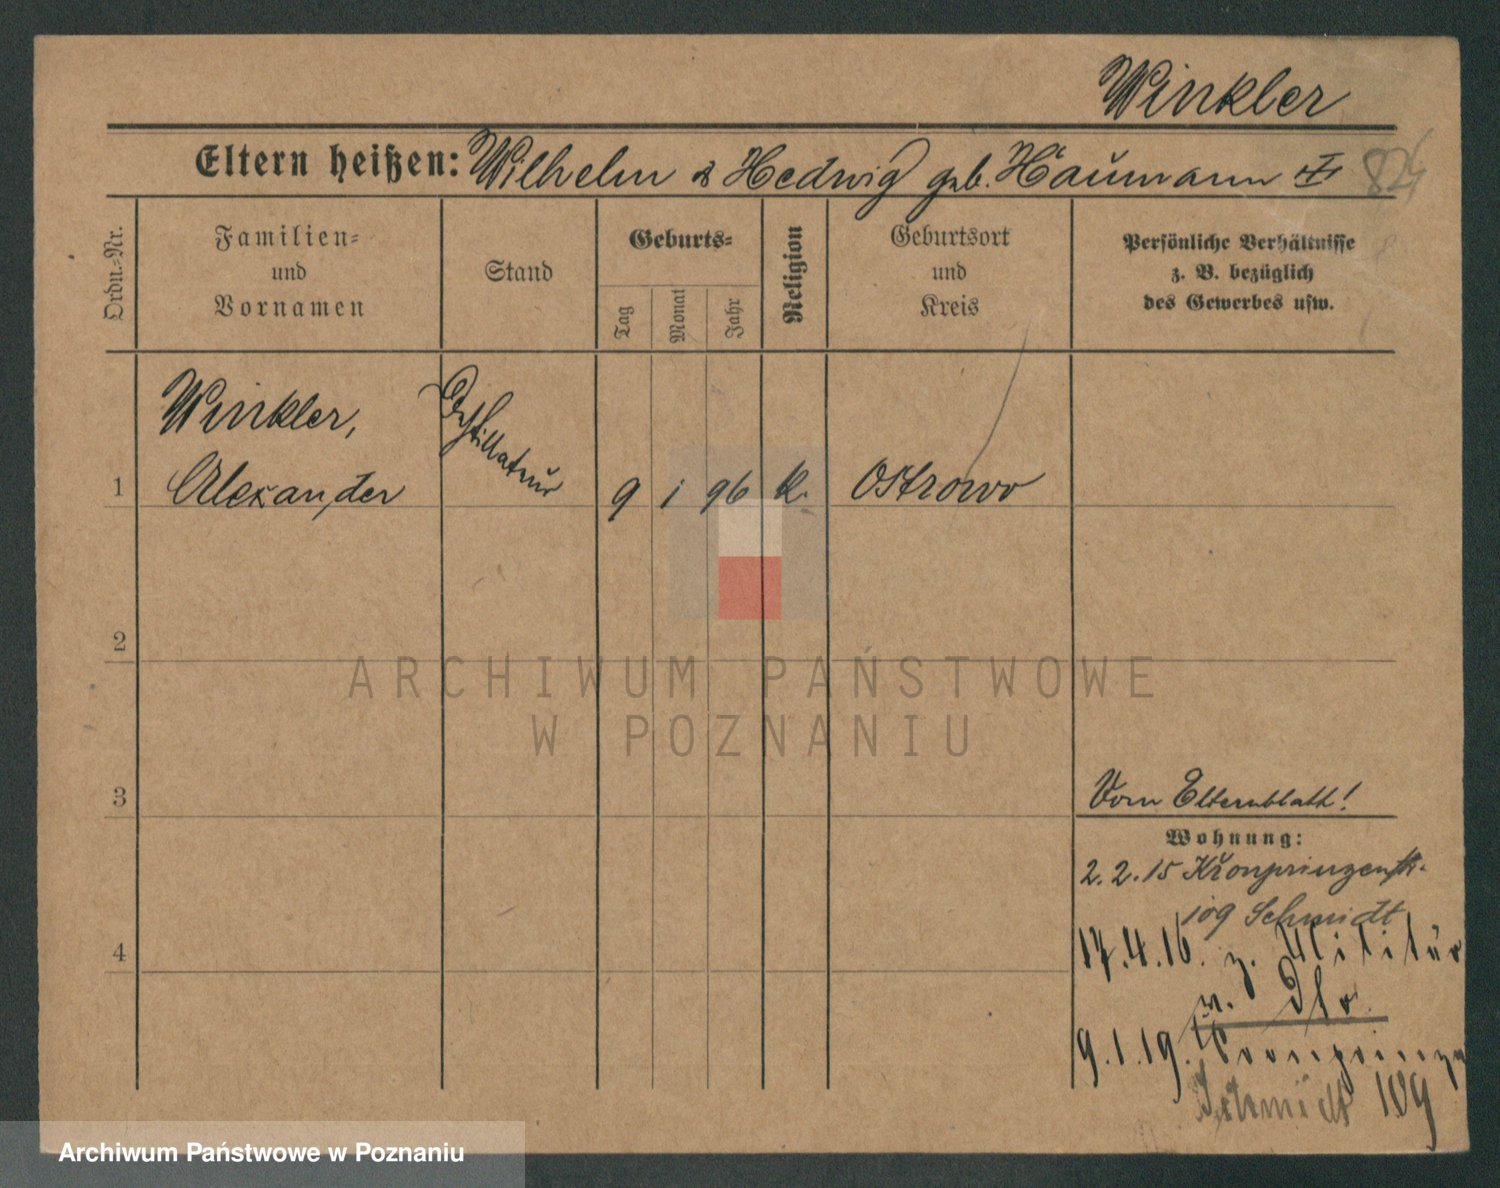 Winkler
Eltern heißen: Wilhelm & Hedwig geb. Haümann I
824
Ordn.-Nr.
Familien-
und
Vornamen
Stand
Geburts-
Tag
Monat
Jahr
Religion
Geburtsort
und
Kreis
Persönliche Verhältnisse
z. B. bezüglich
des Gewerbes usw.
Winkler,
1 Alexander Destillateur 9 1 96 k. Ostrowo
2
ARCHIWUM PAŃSTWOWE
W POZNANIU
3 Vom Elternblatt!
Wohnung:
2.2.15 Kronprinzenstr.
109 Schmidt
4
17.4.16. z. Militär
9.1.19. Kronprinzen
Schmidt 109
Archiwum Państwowe w Poznaniu